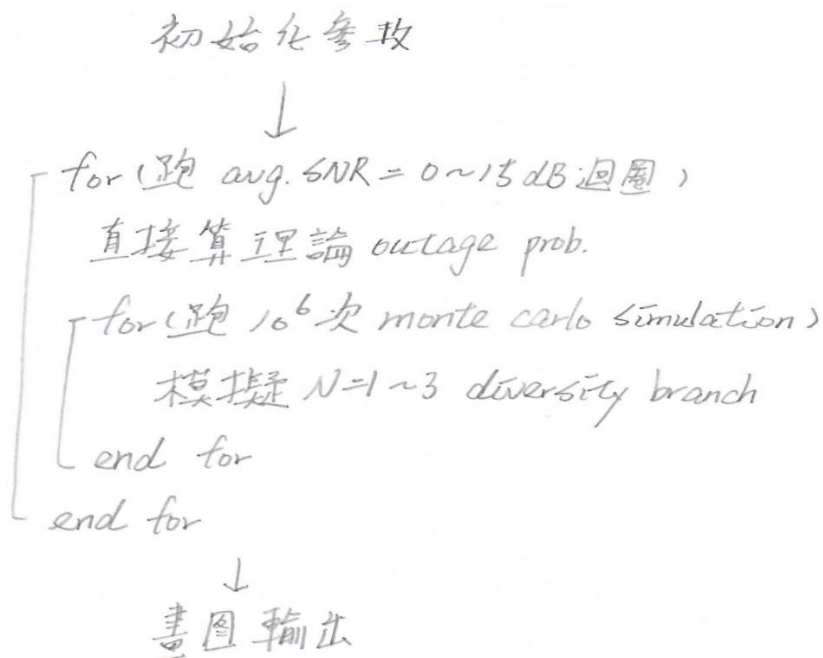 初始化參數
↓
for (跑 avg. SNR = 0~15 dB 迴圈)
直接算理論 outage prob.
for (跑 10^6 次 monte carlo simulation)
模擬 N=1~3 diversity branch
end for
end for
↓
畫図輸出